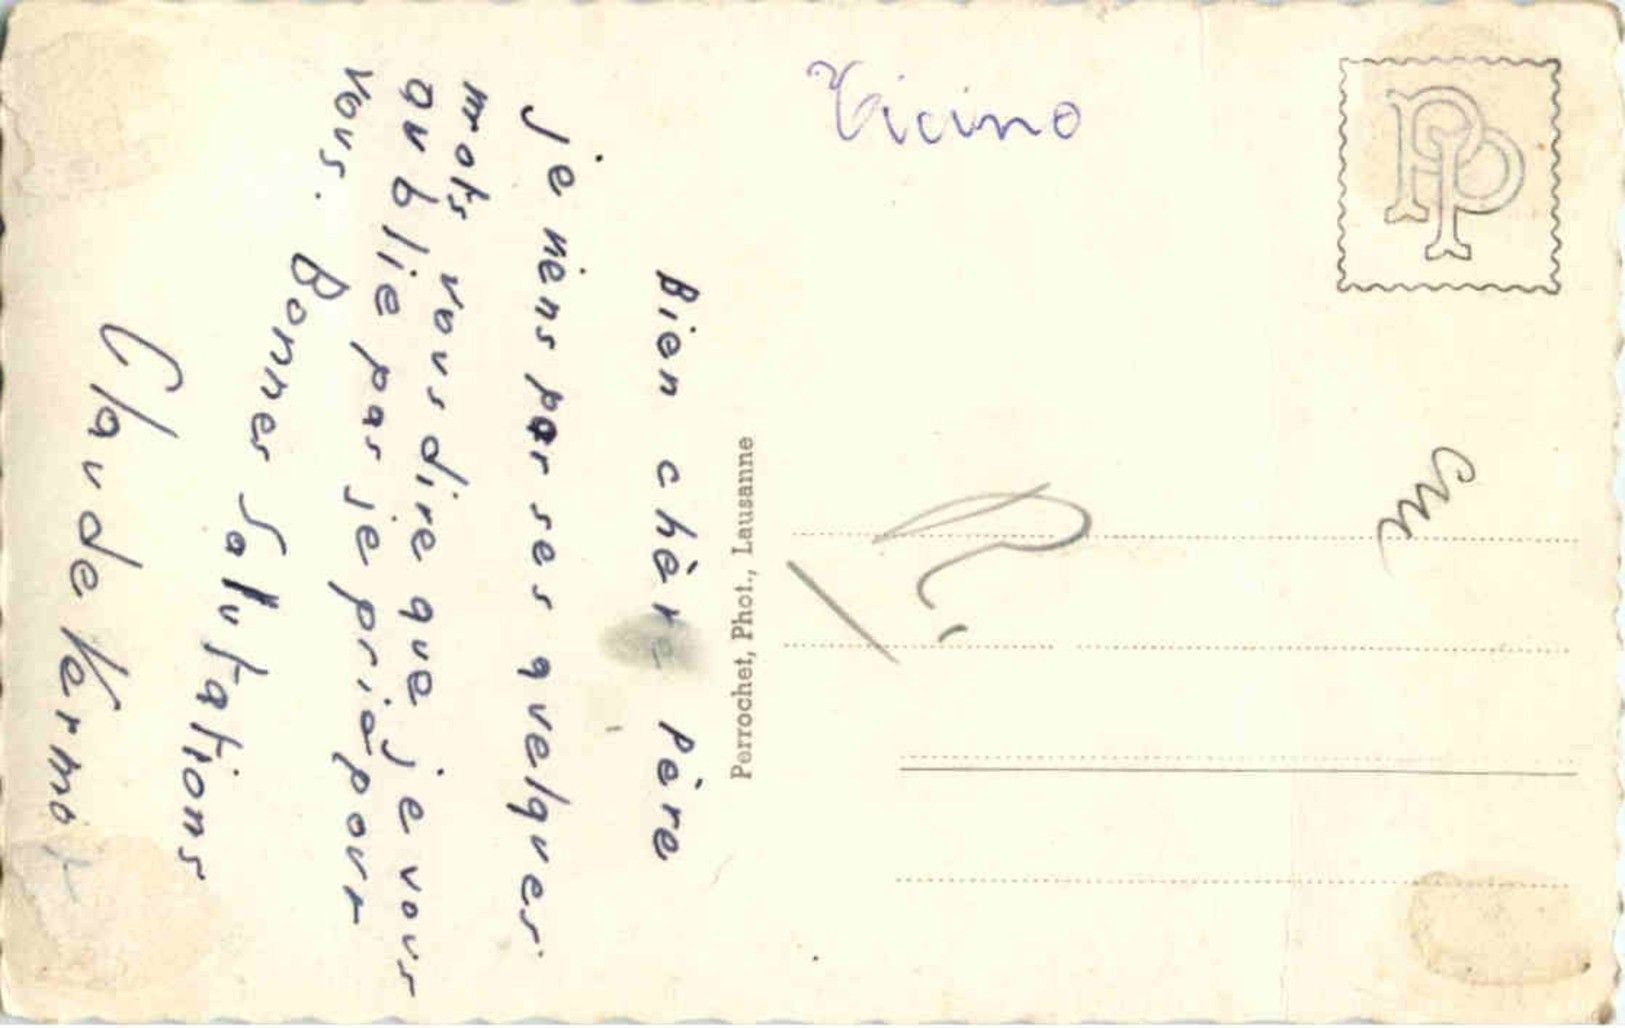 Bien chère Père
je viens par ses quelques
mots vous dire que je vous
oublie pas je prie pour
vous. Bonnes Salutations
Claude Vermot
Perrochet, Phot., Lausanne
Ticino
PP